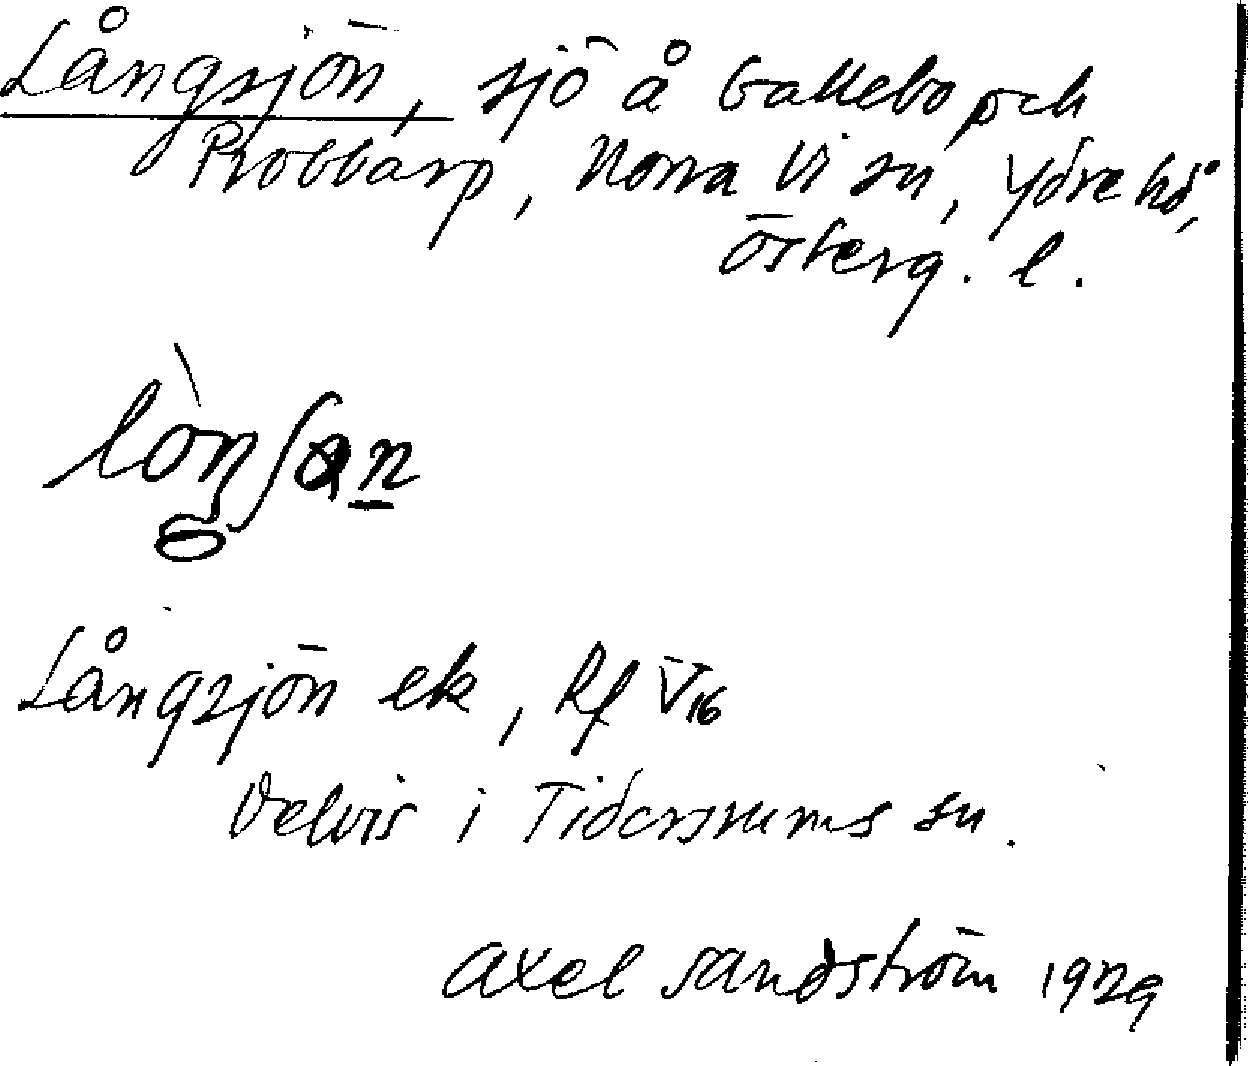 Långsjön, sjö å Gallebo och
Probbarp, Norra Vi sn, Ydre hd,
Österg. l.
Långsjön ek, Rf V16
Delvis i Tidersrums sn.
Axel Sandström 1929